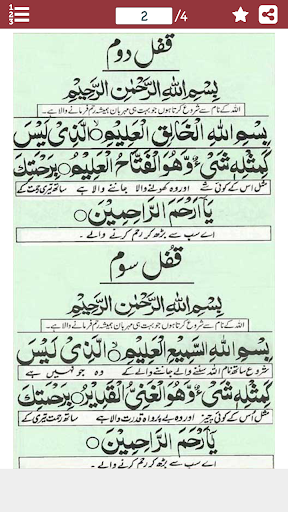 2 /4
قفل دوم
بِسْمِ اللهِ الرَّحْمٰنِ الرَّحِيْمِ
اللہ کے نام سے شروع کرتا ہوں جو بہت ہی مہربان ہمیشہ رحم فرمانے والا ہے۔
بِسْمِ اللهِ الْخَالِقِ الْعَلِيْمِ ○ الَّذِيْ لَيْسَ
كَمِثْلِهٖ شَيْءٌ وَّهُوَ الْفَتَّاحُ الْعَلِيْمُ ○ بِرَحْمَتِكَ
مثل اس کے کوئی شے اور وہ کھولنے والا جاننے والا ہے ساتھ تیری رحمت کے
يَا اَرْحَمَ الرَّاحِمِيْنَ ○
اے سب سے بڑھ کر رحم کرنے والے۔
قفل سوم
بِسْمِ اللهِ الرَّحْمٰنِ الرَّحِيْمِ
اللہ کے نام سے شروع کرتا ہوں جو بہت ہی مہربان ہمیشہ رحم فرمانے والا ہے۔
بِسْمِ اللهِ السَّمِيْعِ الْعَلِيْمِ ○ الَّذِيْ لَيْسَ
شروع ساتھ نام اللہ سننے والے جاننے والے کے وہ جو نہیں ہے
كَمِثْلِهٖ شَيْءٌ وَّهُوَ الْغَنِيُّ الْقَدِيْرُ ○ بِرَحْمَتِكَ
مثل اس کے کوئی چیز اور وہ بے پرواہ قدرت والا ہے ساتھ رحمت تیری کے
يَا اَرْحَمَ الرَّاحِمِيْنَ ○
اے سب سے بڑھ کر رحم کرنے والے۔